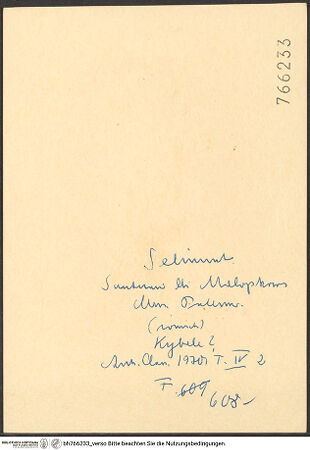 766233
Selinunt
Santuario di Malophoros
Mus. Palermo.
(römisch)
Kybele?
Arch. Class. 1970, T. IV 2
F. 609
608-
bh766233_verso Bitte beachten Sie die Nutzungsbedingungen.